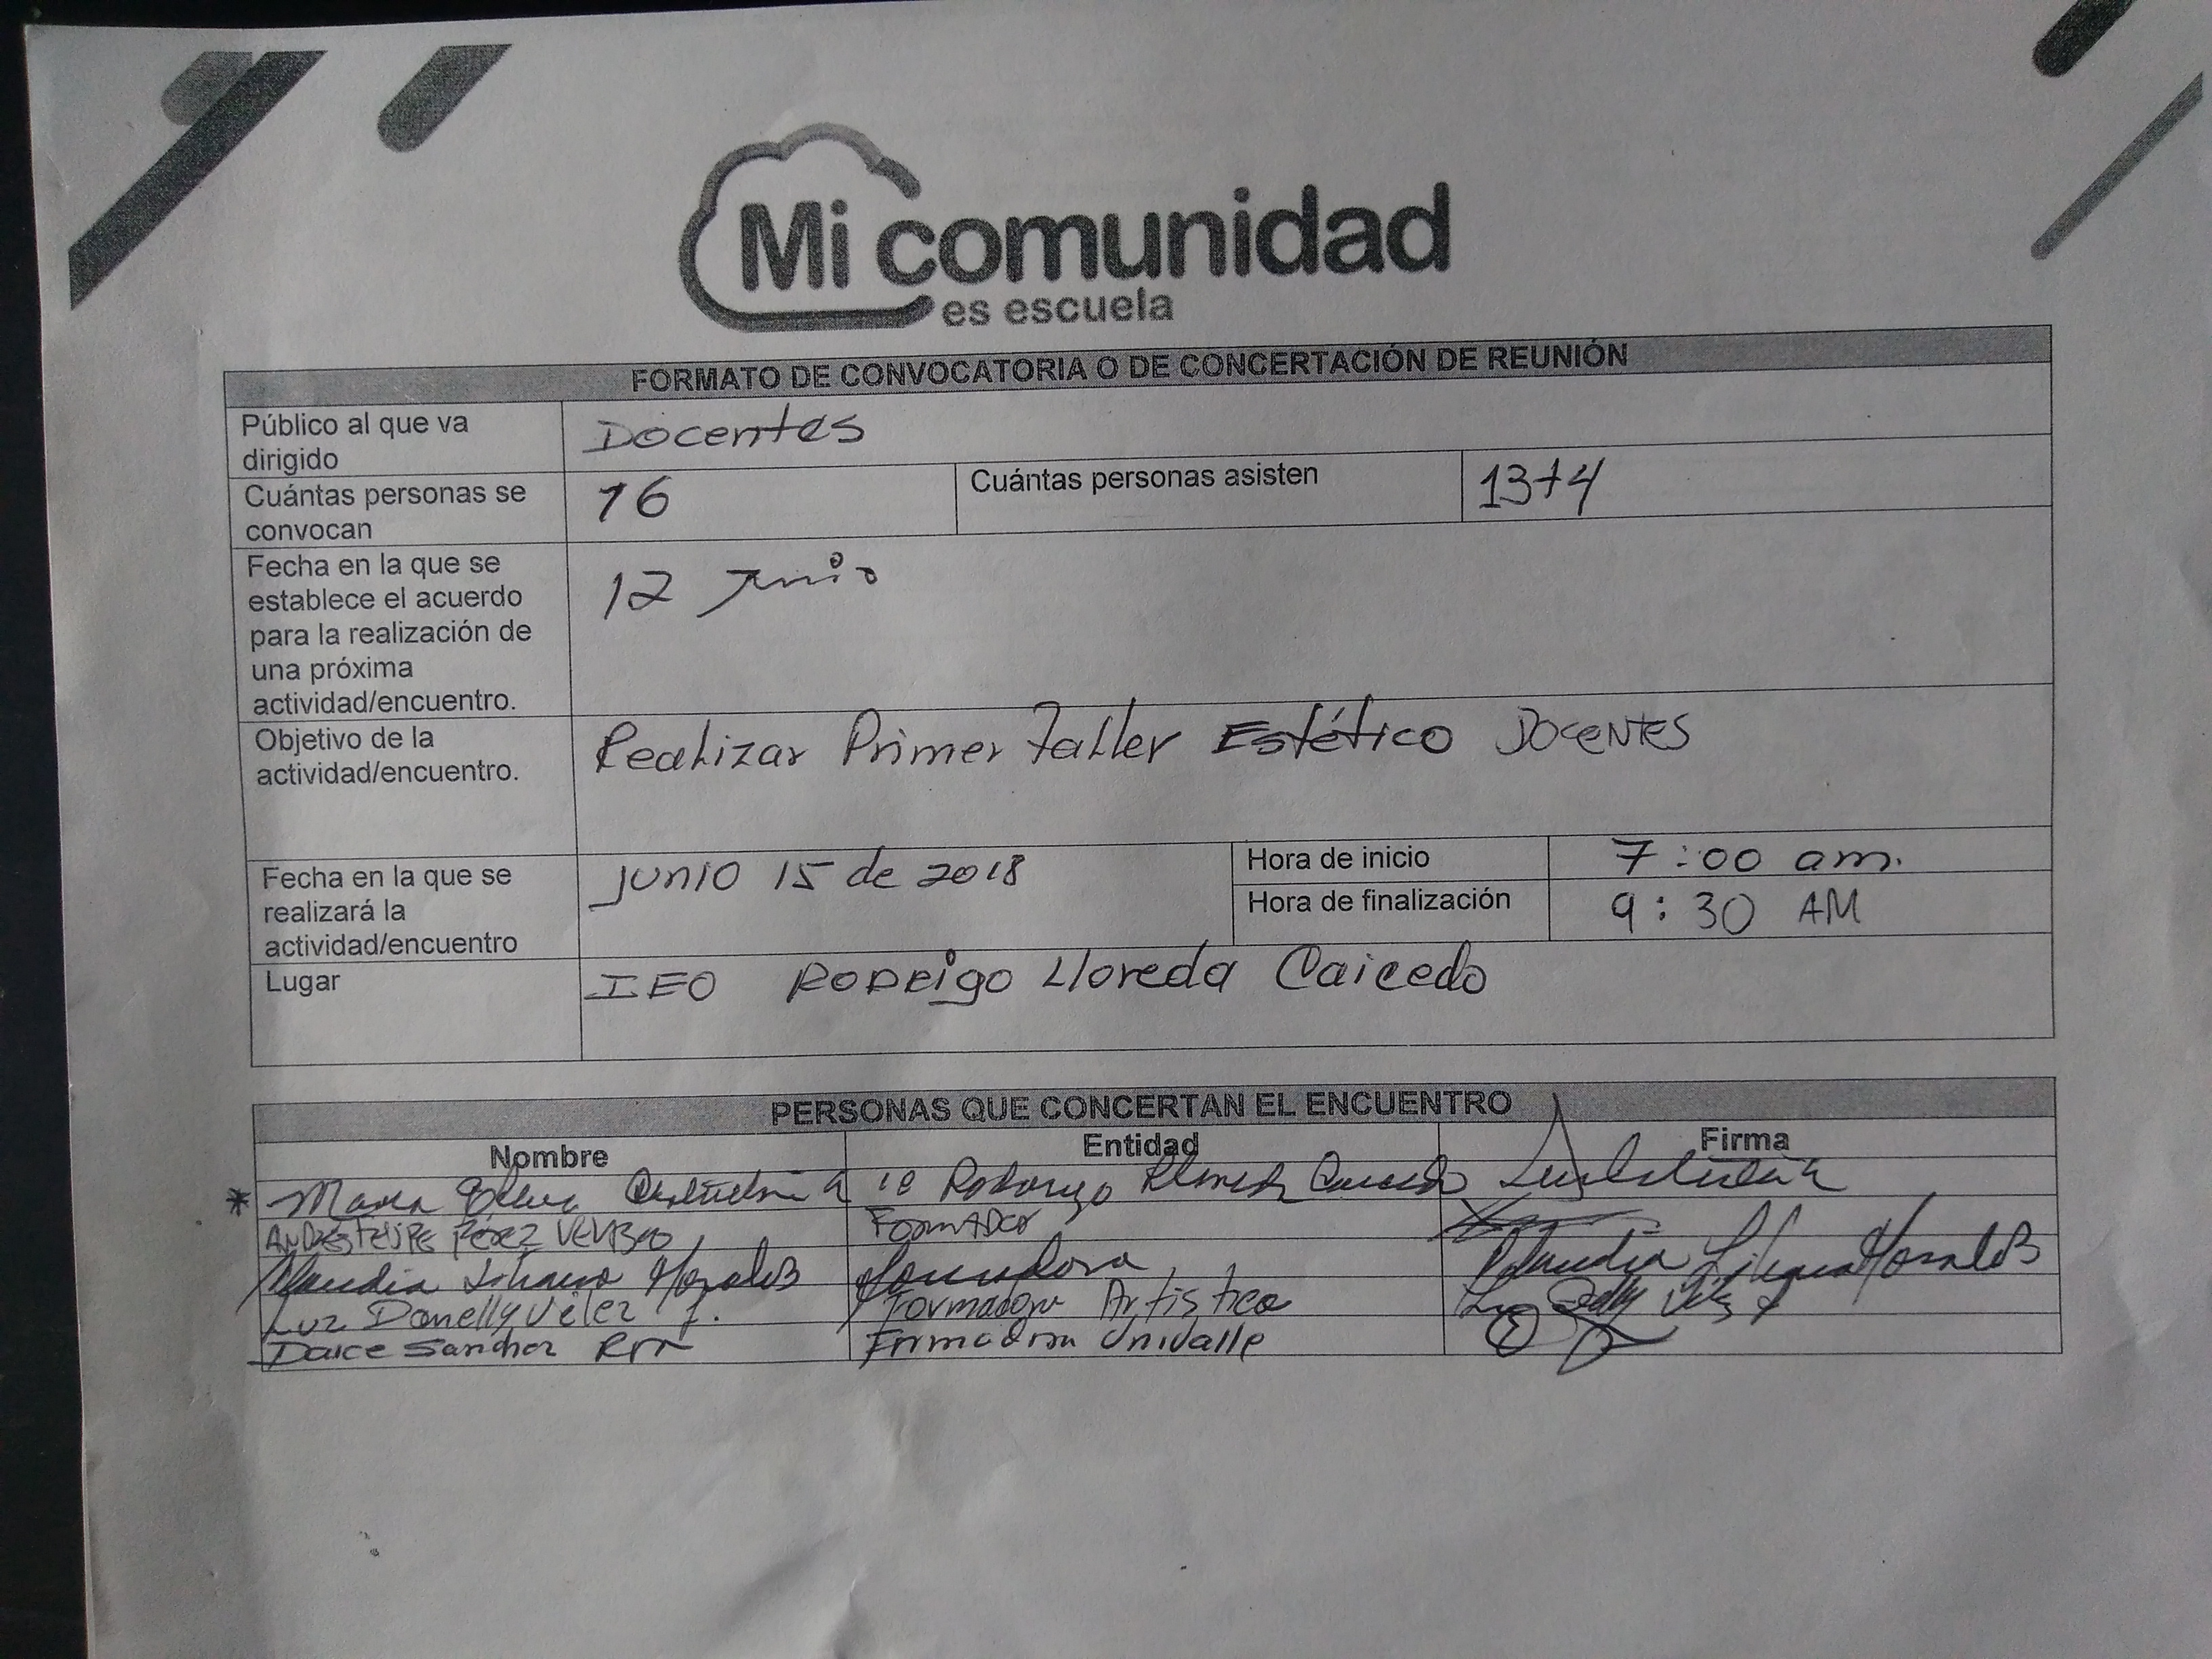 Mi comunidad
es escuela
FORMATO DE CONVOCATORIA O DE CONCERTACIÓN DE REUNIÓN
Público al que va
dirigido
Docentes
Cuántas personas se
convocan
16
Cuántas personas asisten
13+4
Fecha en la que se
establece el acuerdo
para la realización de
una próxima
actividad/encuentro.
12 Junio
Objetivo de la
actividad/encuentro.
Realizar Primer Taller Estético Docentes
Fecha en la que se
realizará la
actividad/encuentro
Junio 15 de 2018
Hora de inicio
7:00 am.
Hora de finalización
9:30 AM
Lugar
IEO Rodrigo Lloreda Caicedo
PERSONAS QUE CONCERTAN EL ENCUENTRO
Nombre Entidad Firma
* Maria IE Rodrigo Lloreda Caicedo
ANDRES FELIPE PÉREZ FORMADOR
Claudia Liliana Morales Claudia Liliana Morales
Luz Danelly Vélez Formadora Artística
Sanchez Formadora Univalle